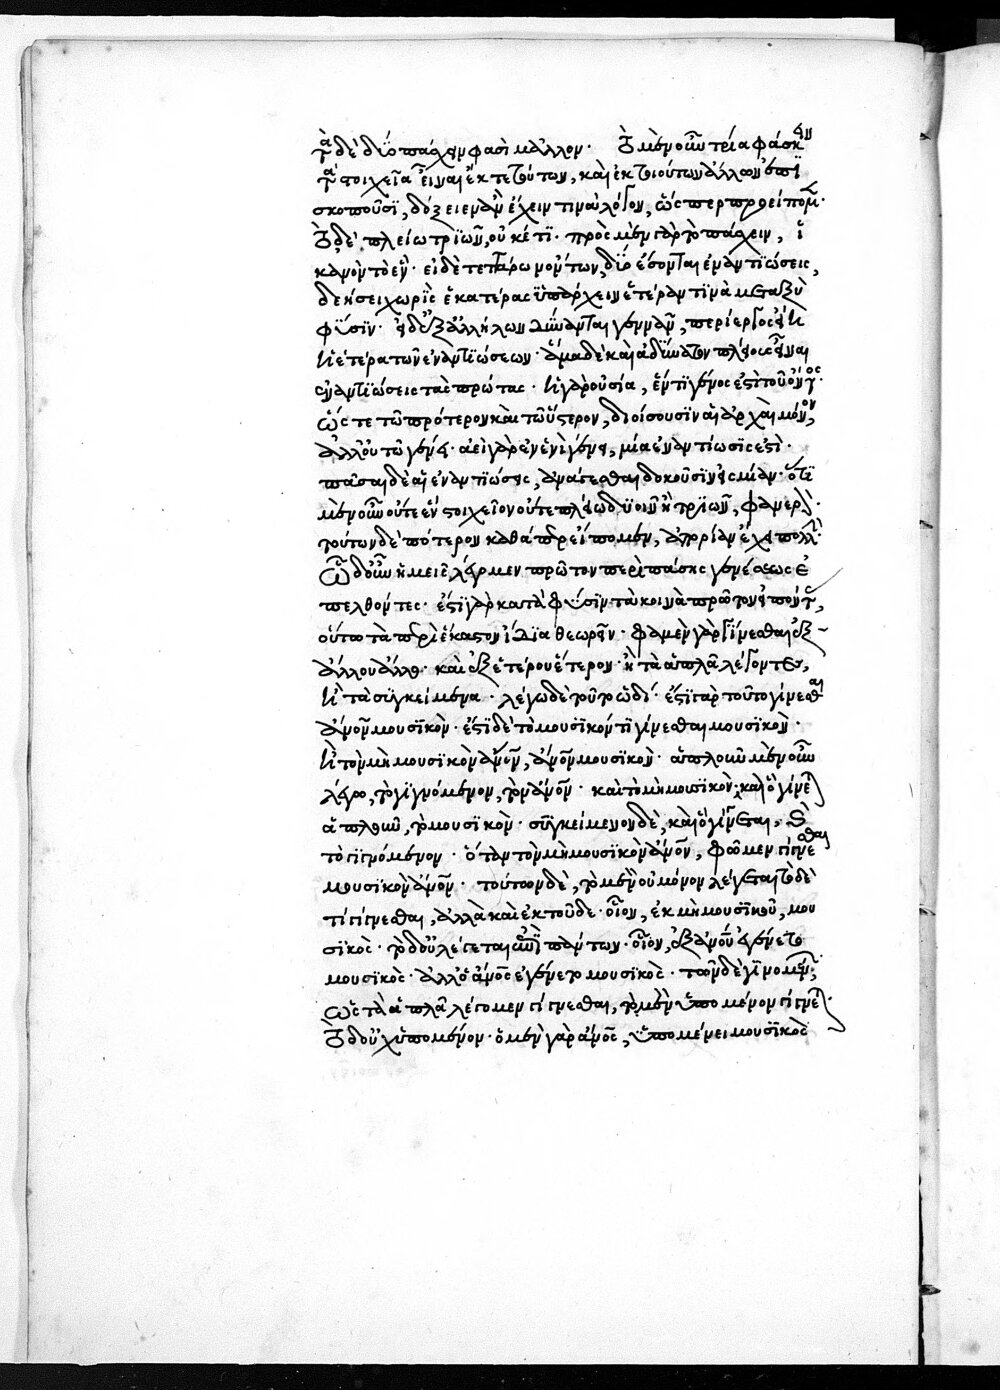 τὰ δὲ δύο πάσχειν φασὶ μᾶλλον. τὸ μὲν οὖν τρία φάσκειν
τὰ στοιχεῖα εἶναι ἔκ τε τούτων, καὶ ἐκ τοιούτων ἄλλων ἐπι
σκοποῦσι, δόξειεν ἂν ἔχειν τινὰ λόγον, ὥσπερ προείπομεν.
τὸ δὲ πλείω τριῶν, οὐκέτι. πρὸς μὲν γὰρ τὸ πάσχειν, ἱ
κανὸν τὸ ἕν. εἰ δὲ τεττάρων ὄντων, δύο ἔσονται ἐναντιώσεις,
δεήσει χωρὶς ἑκατέρας ὑπάρχειν ἑτέραν τινὰ μεταξὺ
φύσιν. εἰ δ' ἐξ ἀλλήλων δύνανται γεννᾶν, περίεργος ἂν εἴη
ἡ ἑτέρα τῶν ἐναντιώσεων. ἅμα δὲ καὶ ἀδύνατον πλείους εἶναι
ἐναντιώσεις τὰς πρώτας. ἡ γὰρ οὐσία, ἕν τι γένος ἐστὶ τοῦ ὄντος.
ὥστε τῷ πρότερον καὶ τῷ ὕστερον, διοίσουσιν αἱ ἀρχαὶ μόνον,
ἀλλ' οὐ τῷ γένει. ἀεὶ γὰρ ἐν ἑνὶ γένει, μία ἐναντίωσις ἐστὶ.
πᾶσαι δὲ αἱ ἐναντιώσεις, ἀνάγεσθαι δοκοῦσιν εἰς μίαν. ὅτι
μὲν οὖν οὔτε ἓν στοιχεῖον οὔτε πλείω δυοῖν ἢ τριῶν, φανερόν.
τούτων δὲ πότερον καθάπερ εἴπομεν, ἀπορίαν ἔχει πολλήν.
ὧδ' οὖν ἡμεῖς λέγωμεν πρῶτον περὶ πάσης γενέσεως ἐ
πελθόντες. ἔστι γὰρ κατὰ φύσιν τὰ κοινὰ πρῶτον εἰπόντας,
οὕτω τὰ περὶ ἕκαστον ἴδια θεωρεῖν. φαμὲν γὰρ γίνεσθαι ἐξ
ἄλλου ἄλλο. καὶ ἐξ ἑτέρου ἕτερον. ἢ τὰ ἁπλᾶ λέγοντες,
ἢ τὰ συγκείμενα. λέγω δὲ τοῦτο ὡδί. ἔστι γὰρ τοῦτο γίνεσθαι
ἄνον μουσικὸν. ἔστι δὲ τὸ μουσικόν τι γίνεσθαι μουσικὸν.
ἢ τὸν μὴ μουσικὸν ἄνον, ἄνον μουσικὸν. ἁπλοῦν μὲν οὖν
λέγω, τὸ γιγνόμενον, τὸν ἄνον. καὶ τὸ μὴ μουσικὸν. καὶ ὃ γίνεται
ἁπλοῦν, τὸ μουσικὸν. συγκείμενον δὲ, καὶ ὃ γίνεται, καὶ
τὸ γιγνόμενον. ὅταν τὸν μὴ μουσικὸν ἄνον, φῶμεν γίγνεσθαι
μουσικὸν ἄνον. τούτων δὲ, τὸ μὲν οὐ μόνον λέγεται τόδε
τι γίγνεσθαι, ἀλλὰ καὶ ἐκ τοῦδε. οἷον, ἐκ μὴ μουσικοῦ, μου
σικὸς. τὸ δ' οὐ λέγεται ἐπὶ πάντων. οἷον, ἐξ ἀνου ἐγένετο
μουσικὸς. ἀλλ' ὁ ἄνος ἐγένετο μουσικὸς. τῶν δὲ γινομένων,
ὡς τὰ ἁπλᾶ λέγομεν γίγνεσθαι, τὸ μὲν ὑπομένον γίγνεται.
τὸ δ' οὐχ ὑπομένον. ὁ μὲν γὰρ ἄνος, ὑπομένει μουσικὸς